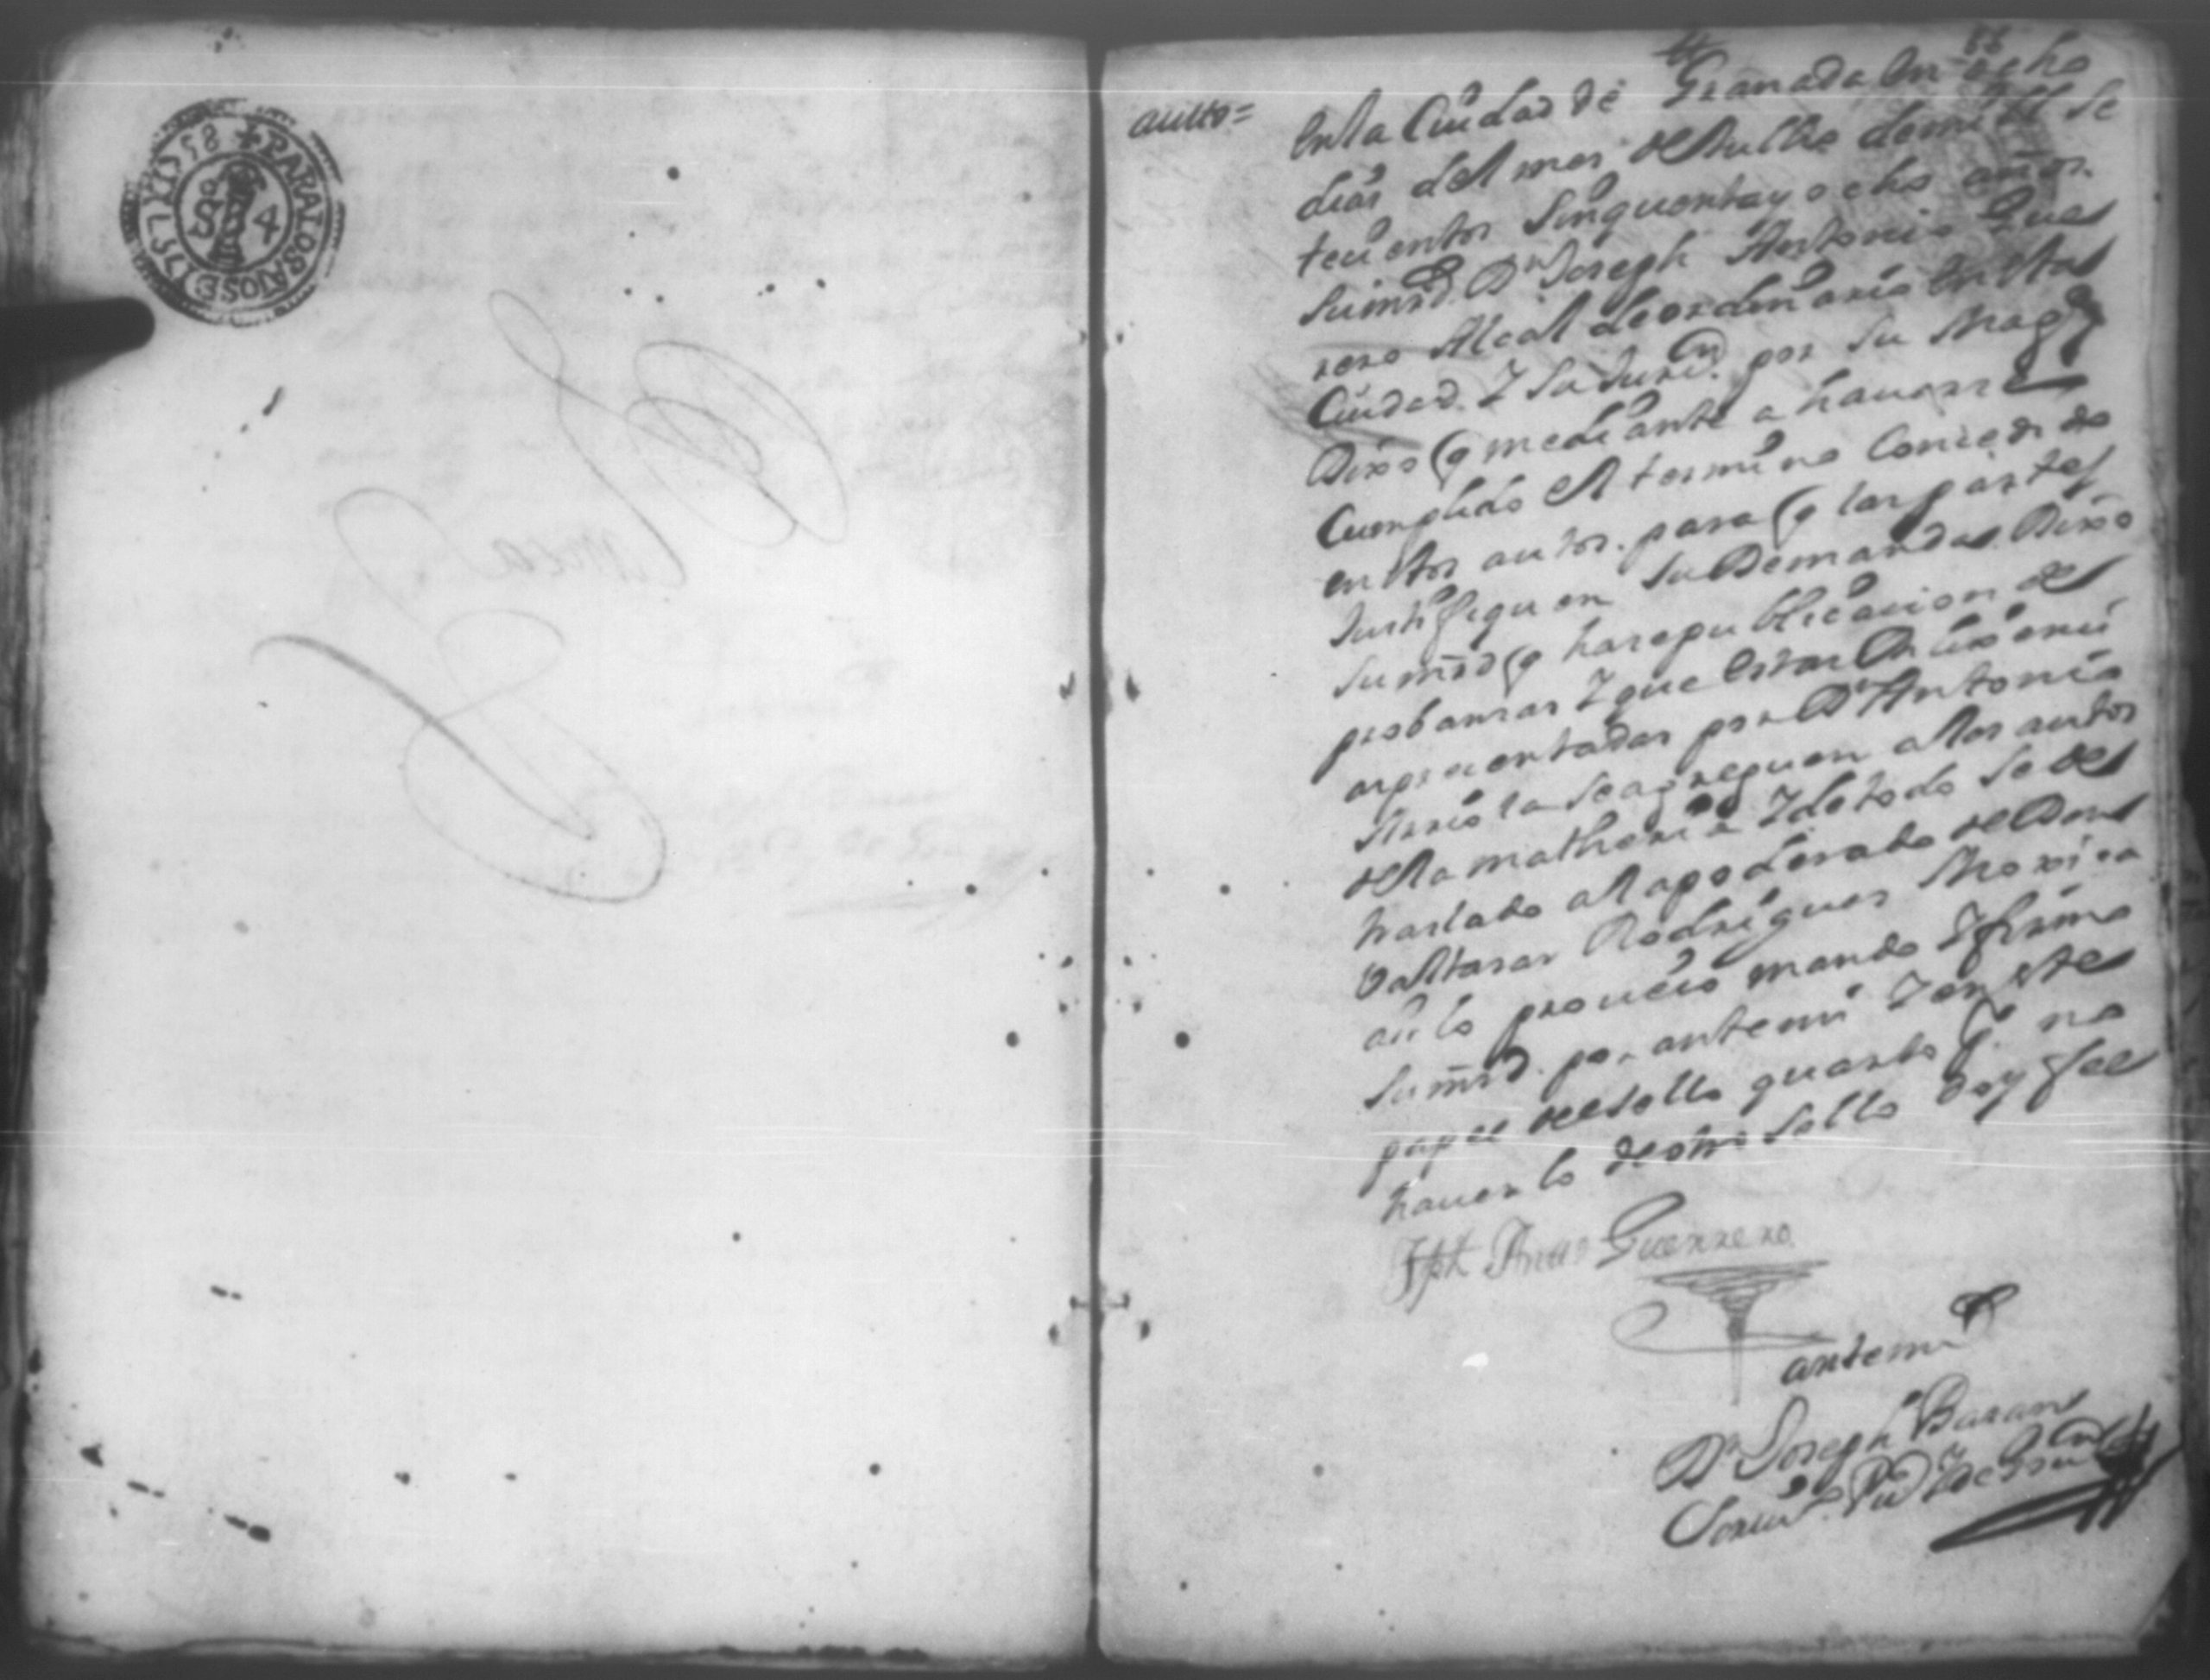 PARA LOS AÑOS DE 1757 Y 1758
S 4
88
autto=
En la Ciudad de Granada en ocho
dias del mes de Jullio de mill se
tecientos Sinquenta y ocho años.
Su mrd. Dn Joseph Antonio Gue
rrero Alcalde ordinario en esta
Ciudad Y Su Jurisdn. por Su Magd
Dixo q mediante a haverse
Cumplido el termino Concedido
en estos autos. para q las partes
Justifiquen Su Demandas Dixo
Su mrd q hase publicacion de
probansas Y que
presentadas por Dn Antonio
Arrieta Se agreguen a los autos
de la matheria Y de todo Se de
traslado al apoderado de Don
Valtasar Rodriguez Moxica
auto proueio mando Y firmo
Su mrd. por ante mi Y en este
papel del sello quarto q. no
hauerlo de otro Sello doy fee
Jph Anto Guerrero
ante mi
Dn Joseph Basan